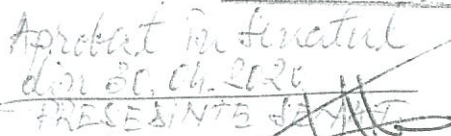 Aprobat în Senatul
din 30.04.2020
PRESEDINTE SENAT